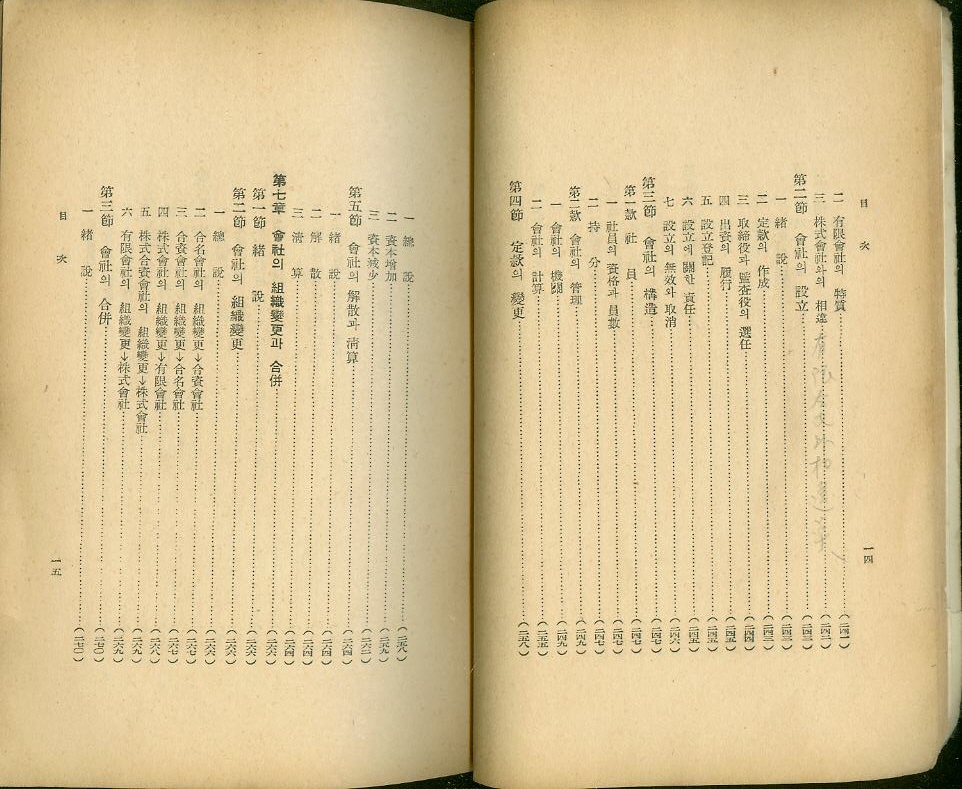 目 次
一四
二 有限會社의 特質……(二四一)
三 株式會社와의 相違……(二四二)
第二節 會社의 設立……(二四三)
一 緖 說……(二四三)
二 定款의 作成……(二四三)
三 取締役과 監査役의 選任……(二四四)
四 出資의 履行……(二四五)
五 設立登記……(二四五)
六 設立에 關한 責任……(二四五)
七 設立의 無效와 取消……(二四六)
第三節 會社의 構造……(二四七)
第一款 社 員……(二四七)
一 社員의 資格과 員數……(二四七)
二 持 分……(二四七)
第二款 會社의 管理……(二四九)
一 會社의 機關……(二四九)
二 會社의 計算……(二五五)
第四節 定款의 變更……(二五八)
一 總 說……(二五八)
二 資本增加……(二五九)
三 資本減少……(二六二)
第五節 會社의 解散과 淸算……(二六四)
一 緖 說……(二六四)
二 解 散……(二六四)
三 淸 算……(二六四)
第七章 會社의 組織變更과 合併……(二六六)
第一節 緖 說……(二六六)
第二節 會社의 組織變更……(二六六)
一 總 說……(二六六)
二 合名會社의 組織變更→合資會社……(二六七)
三 合資會社의 組織變更→合名會社……(二六七)
四 株式會社의 組織變更→有限會社……(二六八)
五 株式合資會社의 組織變更→株式會社……(二六九)
六 有限會社의 組織變更→株式會社……(二六九)
第三節 會社의 合併……(二七〇)
一 緖 說……(二七〇)
目 次
一五